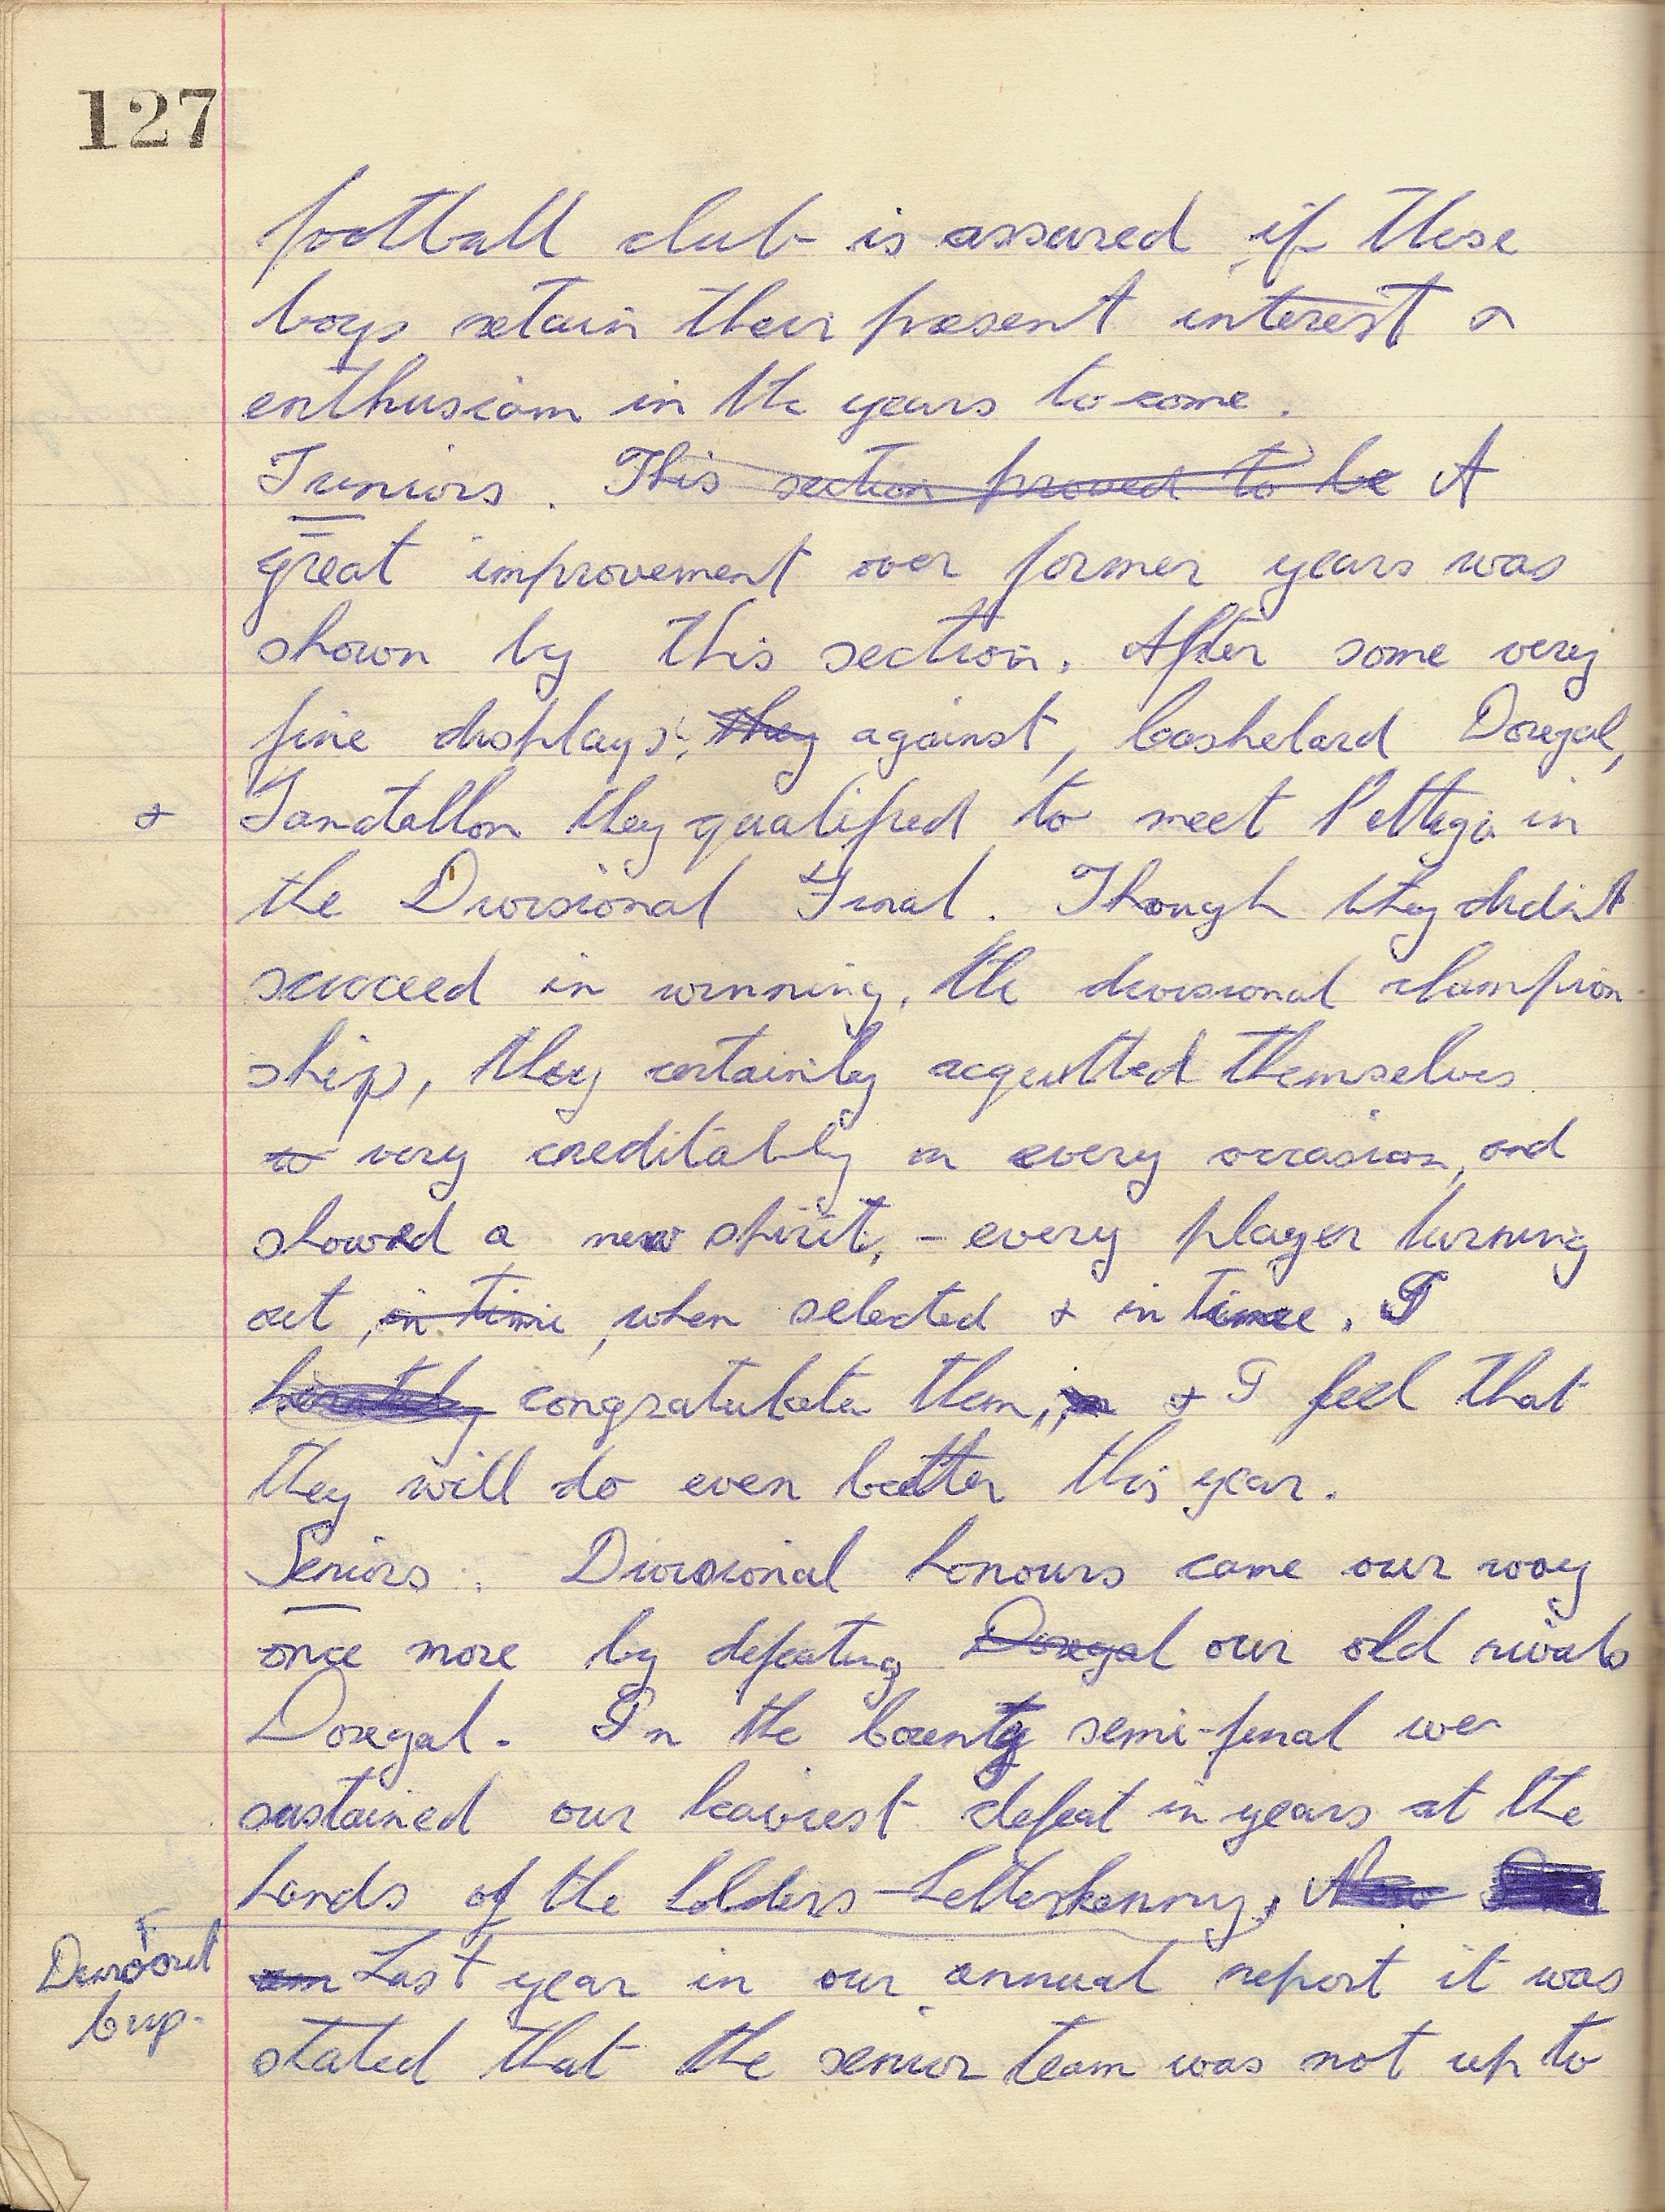 127
football club is assured if these
boys retain their present interest &
enthusiasm in the years to come.
Juniors. This section proved to be A
great improvement over former years was
shown by this section. After some very
fine displays, they against, Cashelard Donegal,
& Tamatallon they qualified to meet Pettigo in
the Divisional Final. Though they didn't
succeed in winning, the divisional champion-
ship, they certainly acquitted themselves
very creditably on every occasion, and
showed a new spirit, - every player turning
out, in time, when selected & in time. I
heartily congratulate them, in & I feel that
they will do even better this year.
Seniors. Divisional honours came our way
once more by defeating Donegal our old rivals
Donegal. In the County semi-final we
sustained our heaviest defeat in years at the
hands of the holders - Letterkenny.
Last year in our annual report it was
Cup.
stated that the senior team was not up to